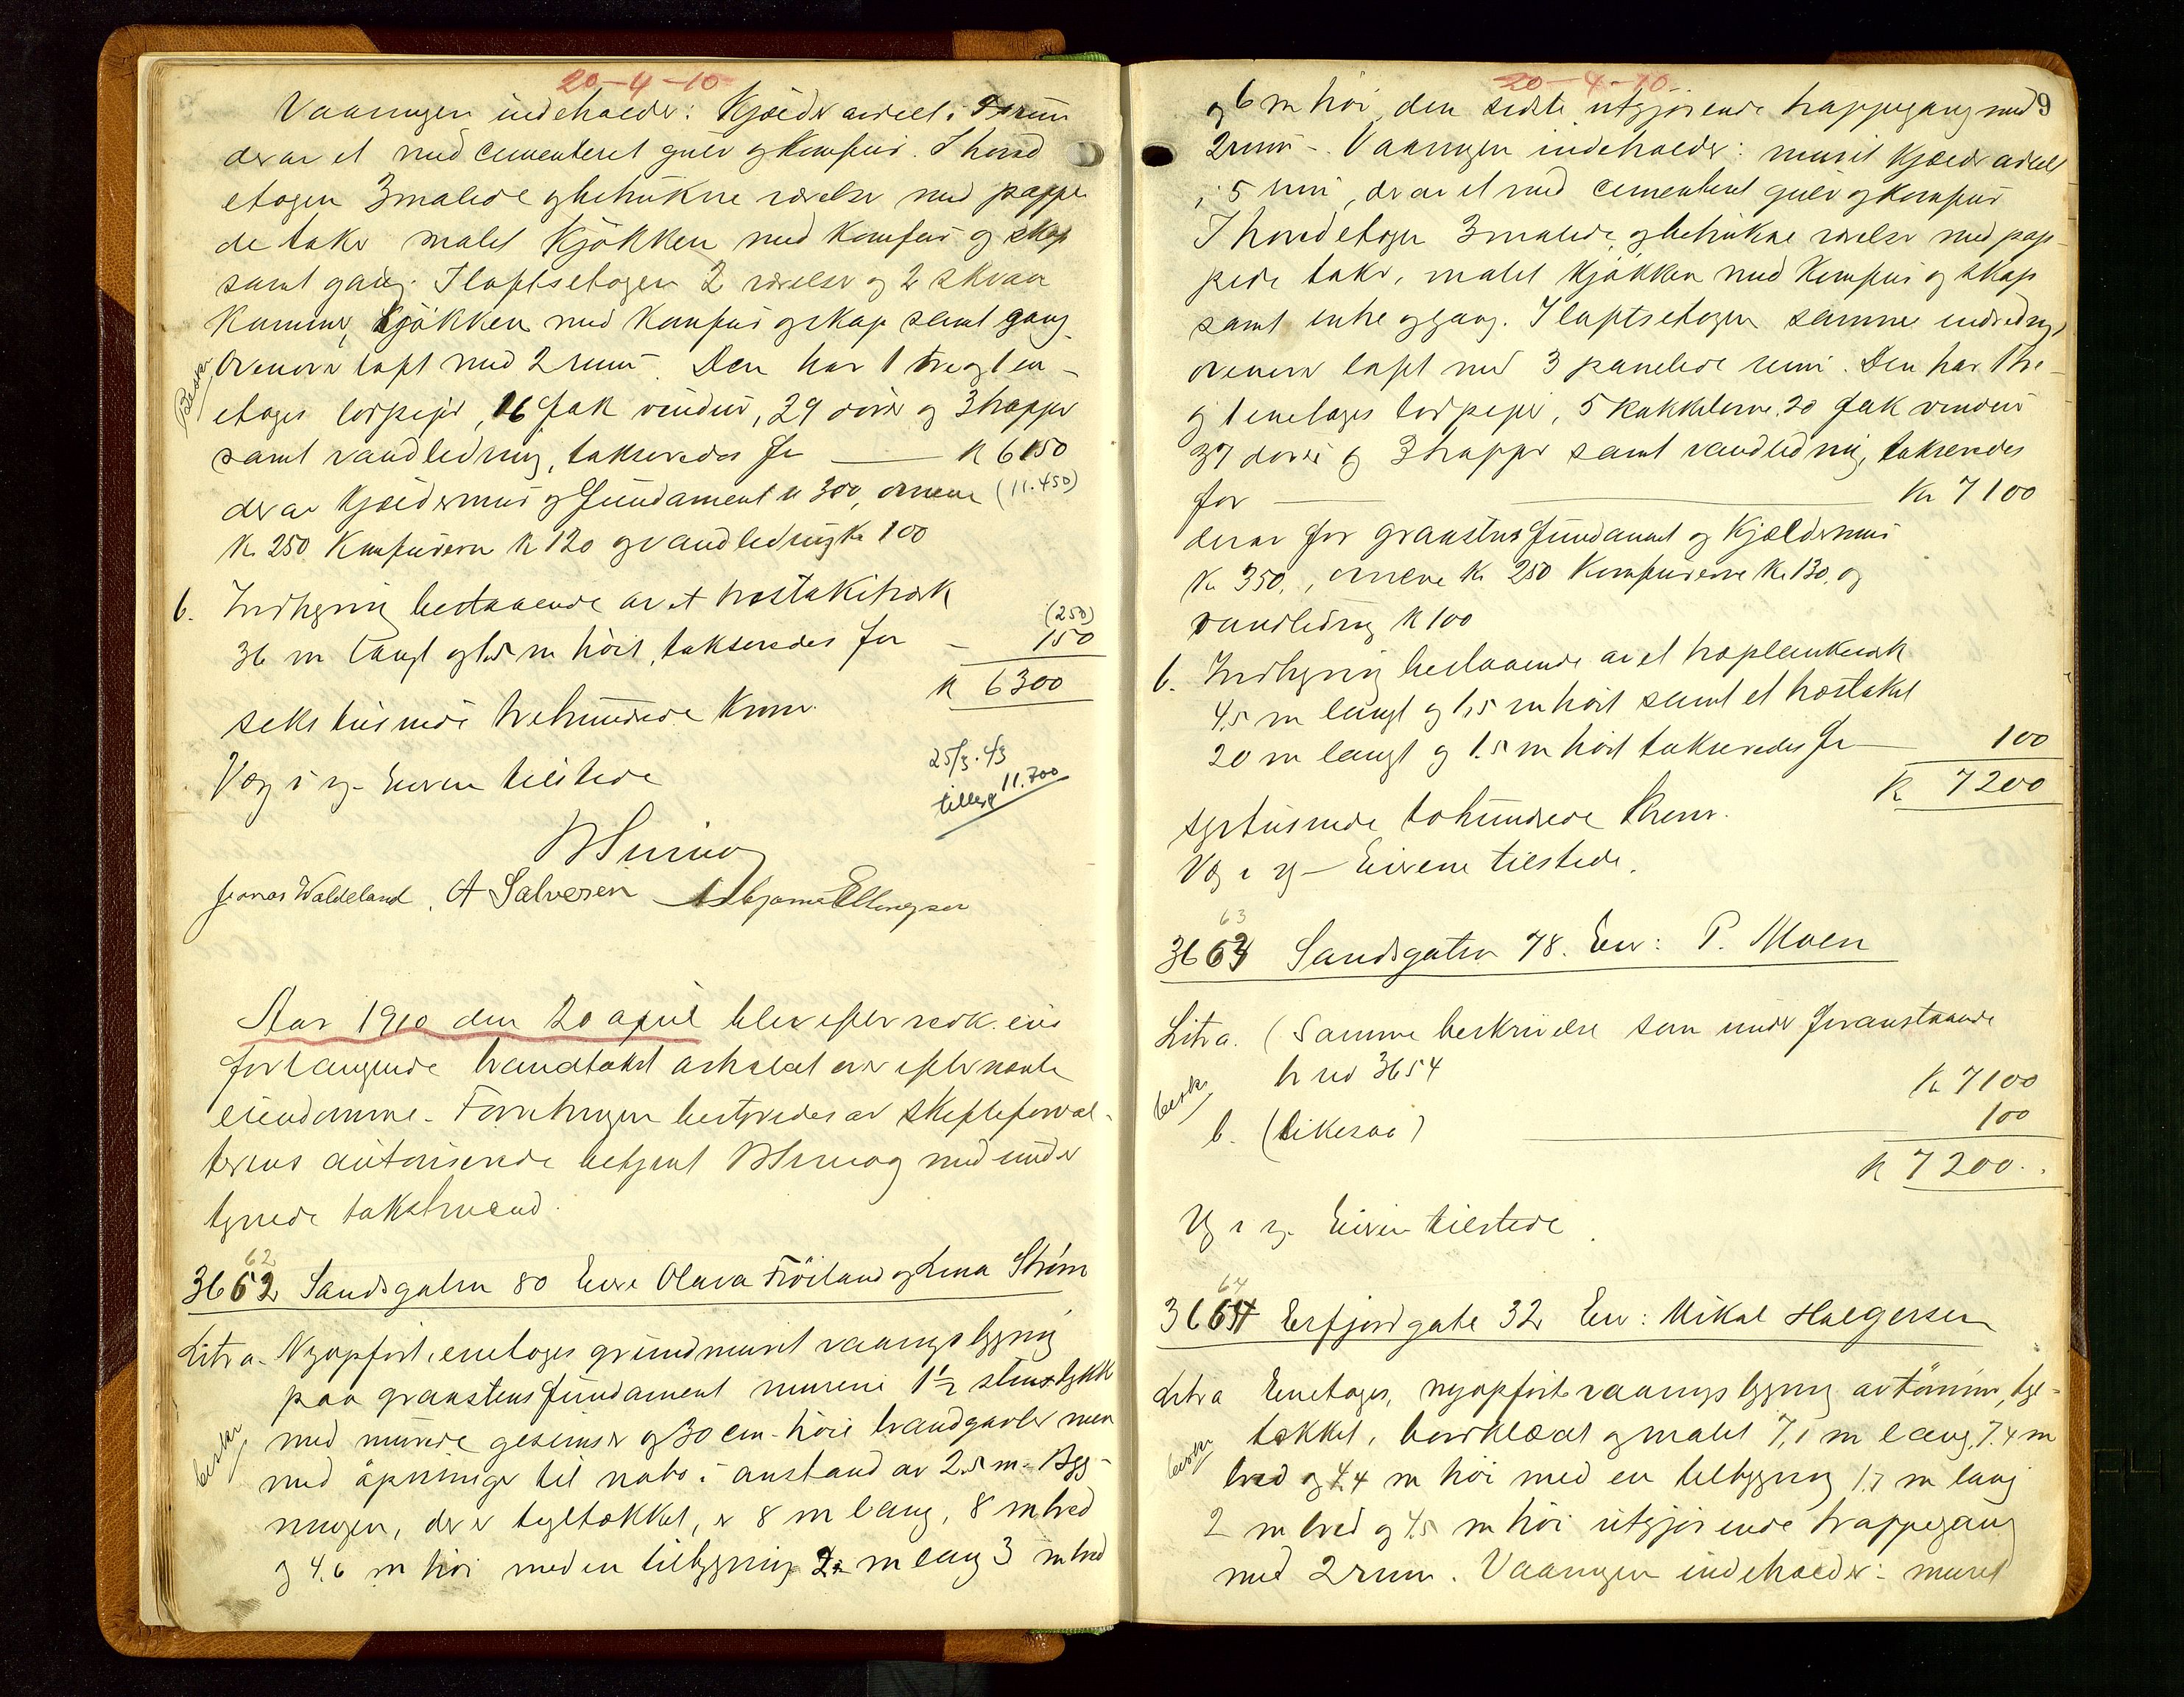 20-4-10
Vaaningen indeholder: Kjælder avdelt i rum
derav et med cementeret gulv og komfur. I hoved
etagen 3 malede og betrukne værelser med pappe
de taker malet kjøkken med komfur og skap
samt gang. I loftsetagen 2 værelser og 2 skraa
kammer, kjøkken med komfur og skap samt gang.
Ovenover loft med 2 rum. Den har 1 tre og 1 en-
etages lorpejs, 16 fak vinduer, 29 dører og 3 trapper
samt vandledning, takseredes for K 6150
derav kjældermur og fundament K 300, ovnene (11.450)
K. 250 Komfurerne K 120 og vandledning K 100
b. Indhegning bestaaende av et træstakitværk
(250)
36 m langt og 1.5 m høit, takseredes for - 150
K 6300
seks tusinde trehundrede Kroner.
Væg i ug. Eieren tilstede
25/3.43
11.700
Jonas Waldeland. A Salvesen Asbjørn Ellingsen
Aar 1910 den 20 april blev efter vedk. eiers
forlangende brandtakst avholdt over efternævnte
eiendomme. Forretningen bestyredes av skifteforval-
terens autoriserede betjent med under
tegnede takstmænd.
62
3662 Sandsgaten 80 Eiere Olava Fröiland og Lina Strøm
Litr a. Nyopført, enetages grundmuret vaaningsbygning
paa graastens fundament murene 1½ stens tykk
med murede gesimser og 30 cm. høie brandgavler men
beskr
med åpninger til nabo i avstand av 2.5 m. Byg-
ningen, der er tegltækket, er 8 m lang, 8 m bred
og 4.6 m høi med en tilbygning 2 m lang 3 m bred
20-4-10
og 6 m høi, den sidste utgjørende trappegang med 9
2 rum. Vaaningen indeholder: muret kjælder avdelt
i 5 rum, derav et med cementeret gulv og komfur
I hovedetagen 3 malede og betrukne værelser med pap-
pede taker, malet kjøkken med komfur og skap
samt entre og gang. I loftsetagen samme indredning,
ovenover loft med 3 panelede rum. Den har 1 tre-
og 1 enetages lorpejs, 5 kakkelovne, 20 fak vinduer
37 dører og 3 trapper samt vandledning, takseredes
for Kr 7100
derav for graastens fundament og kjældermur
K. 350., ovnene K. 250 Komfurerne K. 130. og
vandledning K 100
b. Indhegning bestaaende av et træplankeværk
4,5 m langt og 1,5 m høit samt et træstakit
20 m langt og 1.5 m høit takseredes for 100
K 7200
syvtusinde tohundrede Kroner.
Væg i ug - Eierne tilstede.
63
3663 Sandsgaten 78. Eier: P. Moen
Litr a. (Samme beskrivelse som under foranstaaende
br no 3654 K 7100
beskr
b. (likesaa) 100
K 7200..
Væg i ug. Eieren tilstede.
64
3664 Erfjordgate 32 Eier: Mikal Halgersen
Litr a Enetages, nyopført vaaningsbygning av tømmer, tegl-
tækket, bordklædt og malet 7,1 m lang, 7.4 m
beskr
bred og 4.4 m høi med en tilbygning 1.7 m lang
2 m bred og 4.5 m høi utgjørende trappegang
med 2 rum. Vaaningen indeholder: muret